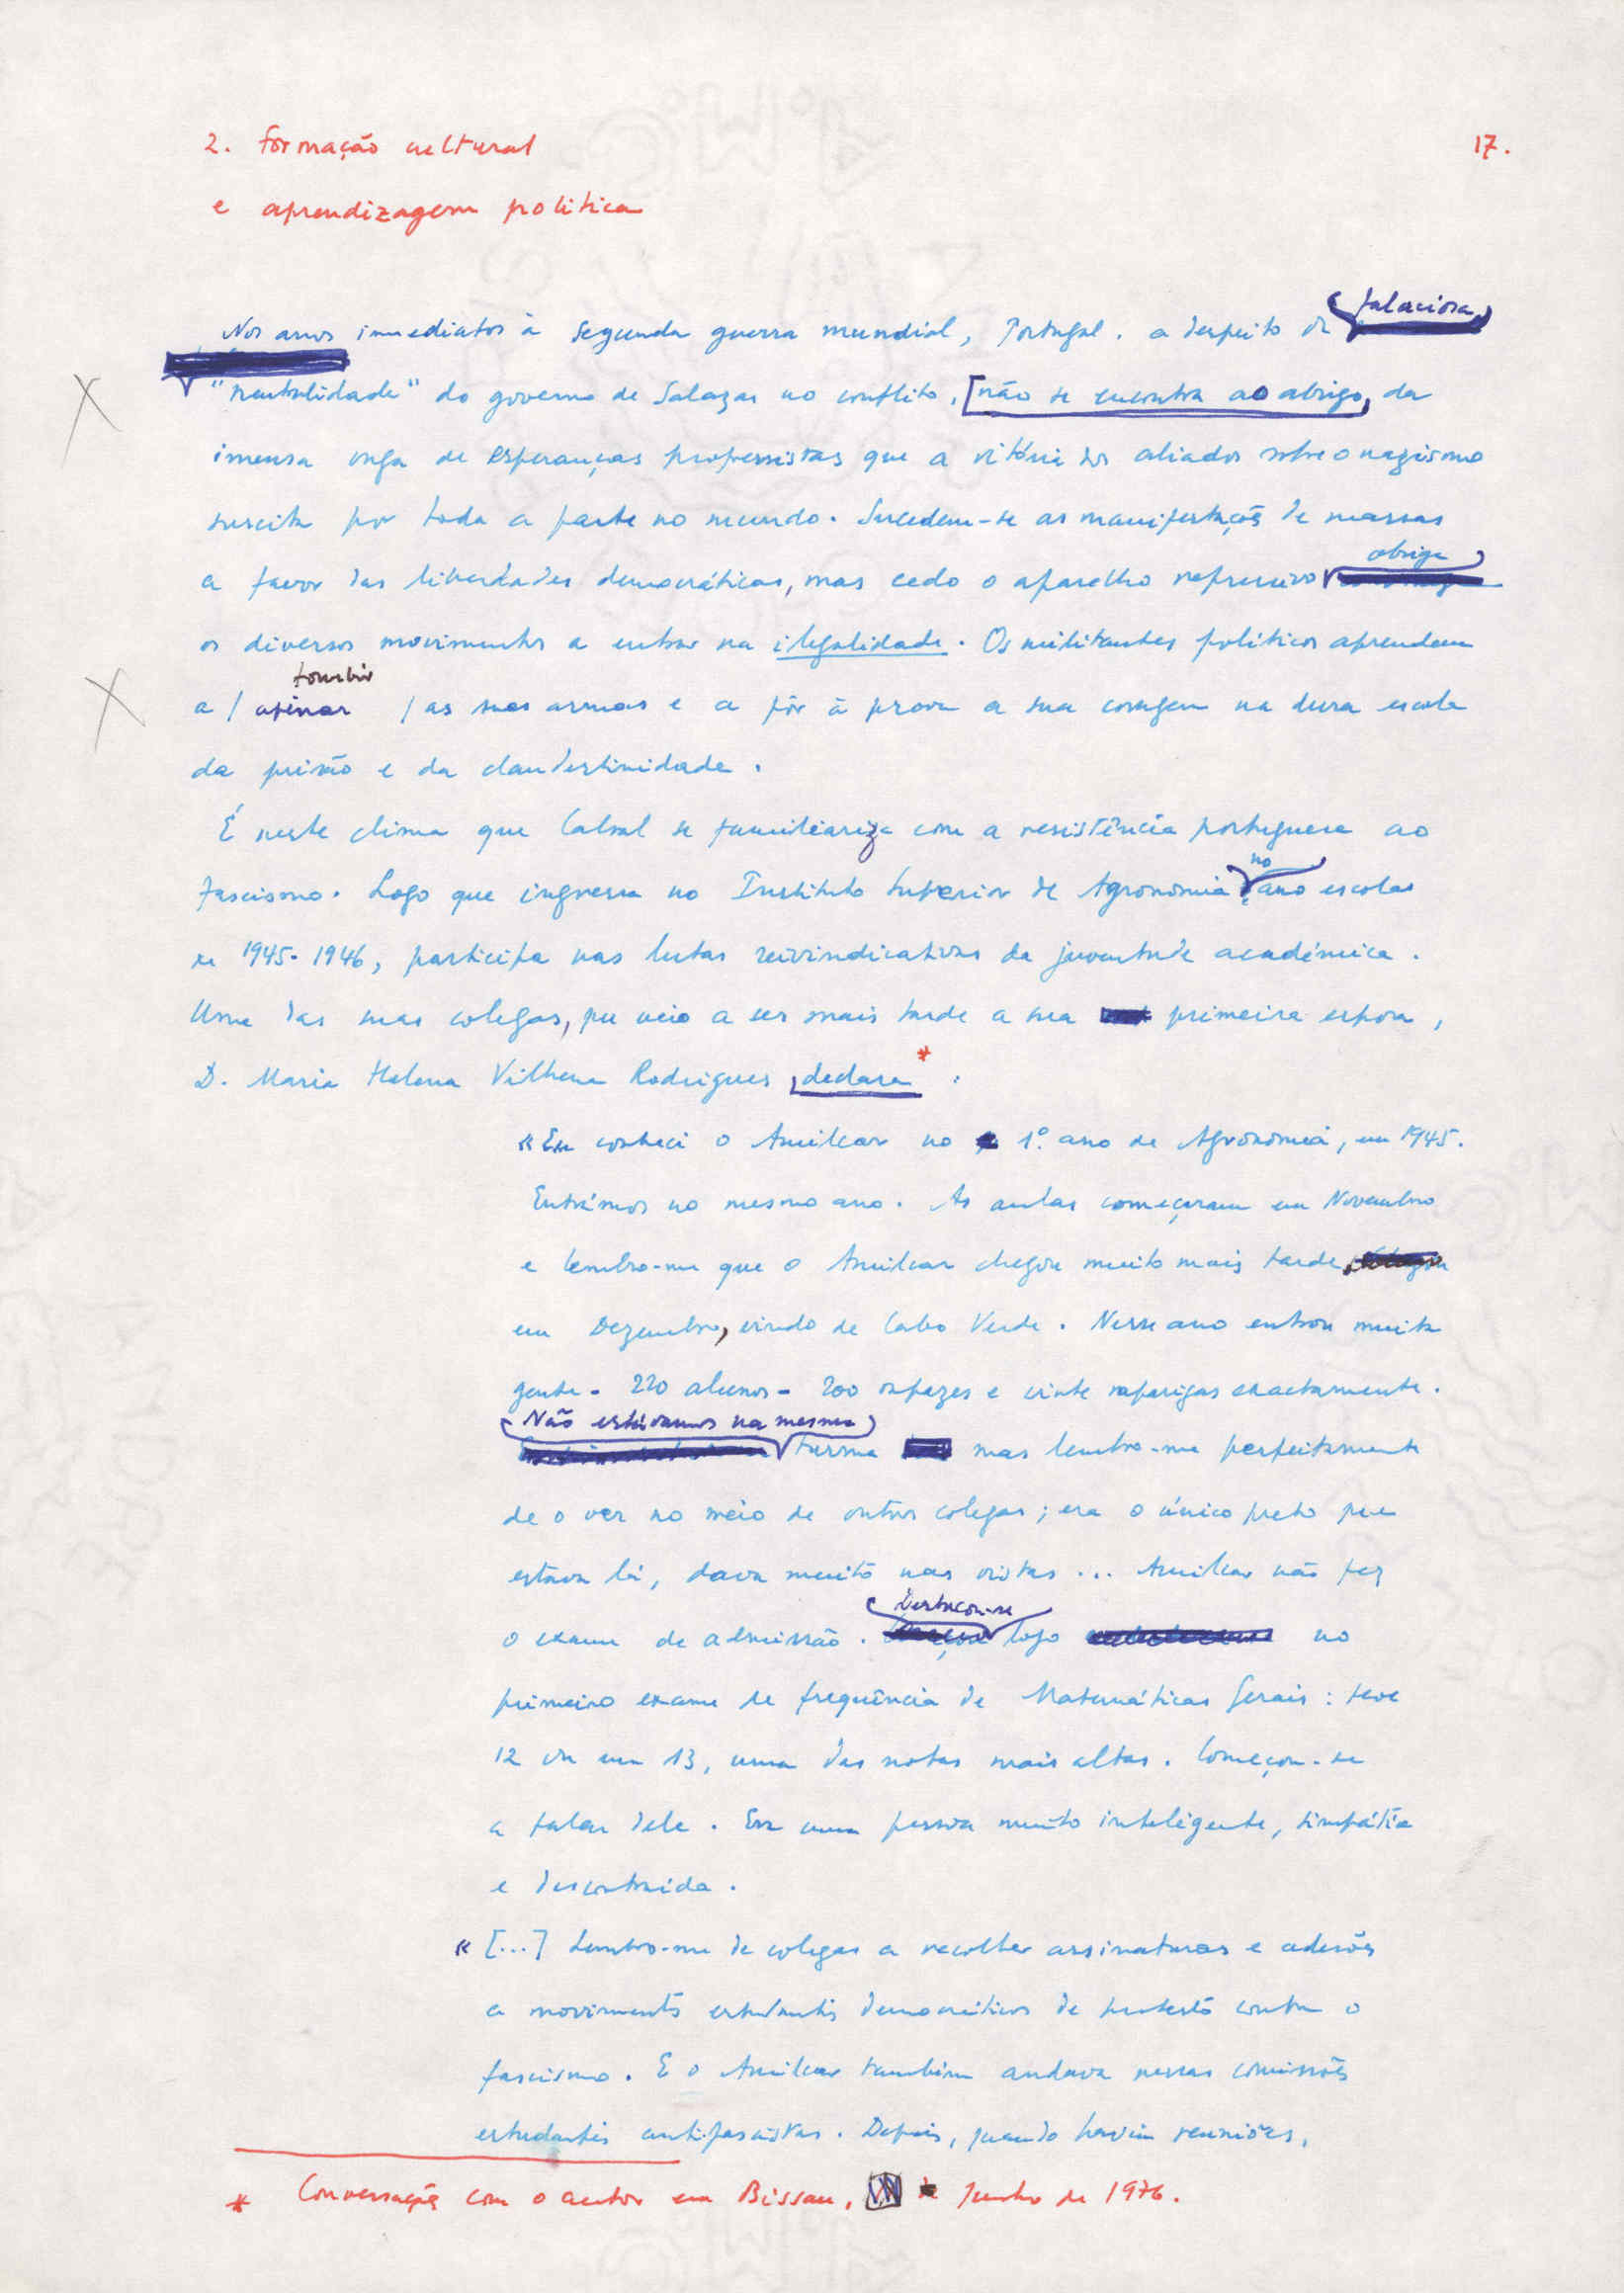 2. Formação cultural
17.
e aprendizagem politica
falaciosa
Nos anos imediatos à segunda guerra mundial, Portugal, a despeito da
"neutralidade" do governo de Salazar no conflito, [não se encontra ao abrigo, da
imensa onga de esperanças progressistas que a vitória dos aliados sobre o nazismo
suscita por toda a parte no mundo. Sucedem-se as manifestações de massas
obriga
a favor das liberdades democráticas, mas cedo o aparelho repressivo
os diversos movimentos a entrar na ilegalidade. Os militantes políticos aprendem
a / afinar / as suas armas e a pôr à prova a sua coragem na dura escola
da prisão e da clandestinidade.
É neste clima que Cabral se familiariza com a resistência portuguesa ao
no
fascismo. Logo que ingressa no Instituto Superior de Agronomia ano escolar
de 1945-1946, participa nas lutas reivindicativas da juventude académica.
Uma das suas colegas, que veio a ser mais tarde a sua primeira esposa,
D. Maria Helena Vilhena Rodrigues, declara * :
«Eu conheci o Amilcar no 1º. ano de Agronomia, em 1945.
Entrámos no mesmo ano. As aulas começaram em Novembro
e lembro-me que o Amilcar chegou muito mais tarde,
em Dezembro, vindo de Cabo Verde. Nesse ano entrou muita
gente - 220 alunos - 200 rapazes e vinte raparigas exactamente.
Não estávamos na mesma
turma mas lembro-me perfeitamente
de o ver no meio de outros colegas; era o único preto que
estava lá, dava muito nas vistas... Amilcar não fez
Destacou-se
o exame de admissão. logo no
primeiro exame de frequência de Matemáticas Gerais: teve
12 ou um 13, uma das notas mais altas. Começou-se
a falar dele. Era uma pessoa muito inteligente, simpática
e descontraída.
« [...] Lembro-me de colegas a recolher assinaturas e adesões
a movimentos estudantis democráticos de protesto contra o
fascismo. E o Amilcar também andava nessas comissões
estudantis antifascistas. Depois, quando havia reuniões,
* Conversação com o autor em Bissau, Junho de 1976.